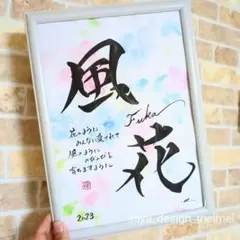 風
Fuka
花
花のように
みんなに愛されて
風のように
のびのびと
育ちますように
2023.